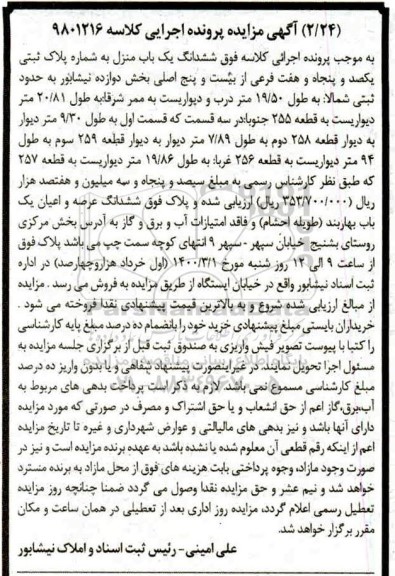 (۲/۲۴) آگهی مزایده پرونده اجرایی کلاسه ۹۸۰۱۲۱۶
به موجب پرونده اجرائی کلاسه فوق ششدانگ یک باب منزل به شماره پلاک ثبتی
یکصد و پنجاه و هفت فرعی از بیست و پنج اصلی بخش دوازده نیشابور به حدود
ثبتی شمالا: به طول ۱۹/۵۰ متر درب و دیواریست به ممر شرقا: به طول ۲۰/۸۱ متر
دیواریست به قطعه ۲۵۵ جنوبا: در سه قسمت که قسمت اول به طول ۹/۳۰ متر دیوار
به دیوار قطعه ۲۵۸ دوم به طول ۷/۸۹ متر دیوار به دیوار قطعه ۲۵۹ سوم به طول
۹۴ متر دیواریست به قطعه ۲۵۶ غربا: به طول ۱۹/۸۶ متر دیواریست به قطعه ۲۵۷
که طبق نظر کارشناس رسمی به مبلغ سیصد و پنجاه و سه میلیون و هفتصد هزار
ریال (۳۵۳/۷۰۰/۰۰۰ ریال) ارزیابی شده و پلاک فوق ششدانگ عرصه و اعیان یک
باب بهاربند (طویله احشام) و فاقد امتیازات آب و برق و گاز به آدرس بخش مرکزی
روستای بشنیج خیابان سپهر - سپهر ۹ انتهای کوچه سمت چپ می باشد پلاک فوق
از ساعت ۹ الی ۱۲ روز شنبه مورخ ۱۴۰۰/۳/۱ (اول خرداد هزاروچهارصد) در اداره
ثبت اسناد نیشابور واقع در خیابان ایستگاه از طریق مزایده به فروش می رسد . مزایده
از مبالغ ارزیابی شده شروع و به بالاترین قیمت پیشنهادی نقدا فروخته می شود .
خریداران بایستی مبلغ پیشنهادی خرید خود را بانضمام ده درصد مبلغ پایه کارشناسی
را کتبا با پیوست تصویر فیش واریزی به صندوق ثبت قبل از برگزاری جلسه مزایده به
مسئول اجرا تحویل نمایند. در غیراینصورت پیشنهاد شفاهی و یا بدون واریز ده درصد
مبلغ کارشناسی مسموع نمی باشد. لازم به ذکر است پرداخت بدهی های مربوط به
آب،برق،گاز اعم از حق انشعاب و یا حق اشتراک و مصرف در صورتی که مورد مزایده
دارای آنها باشد و نیز بدهی های مالیاتی و عوارض شهرداری و غیره تا تاریخ مزایده
اعم از اینکه رقم قطعی آن معلوم شده یا نشده باشد به عهده برنده مزایده است و نیز در
صورت وجود مازاد، وجوه پرداختی بابت هزینه های فوق از محل مازاد به برنده مسترد
خواهد شد و نیم عشر و حق مزایده نقدا وصول می گردد ضمنا چنانچه روز مزایده
تعطیل رسمی اعلام گردد، مزایده روز اداری بعد از تعطیلی در همان ساعت و مکان
مقرر برگزار خواهد شد.
علی امینی- رئیس ثبت اسناد و املاک نیشابور